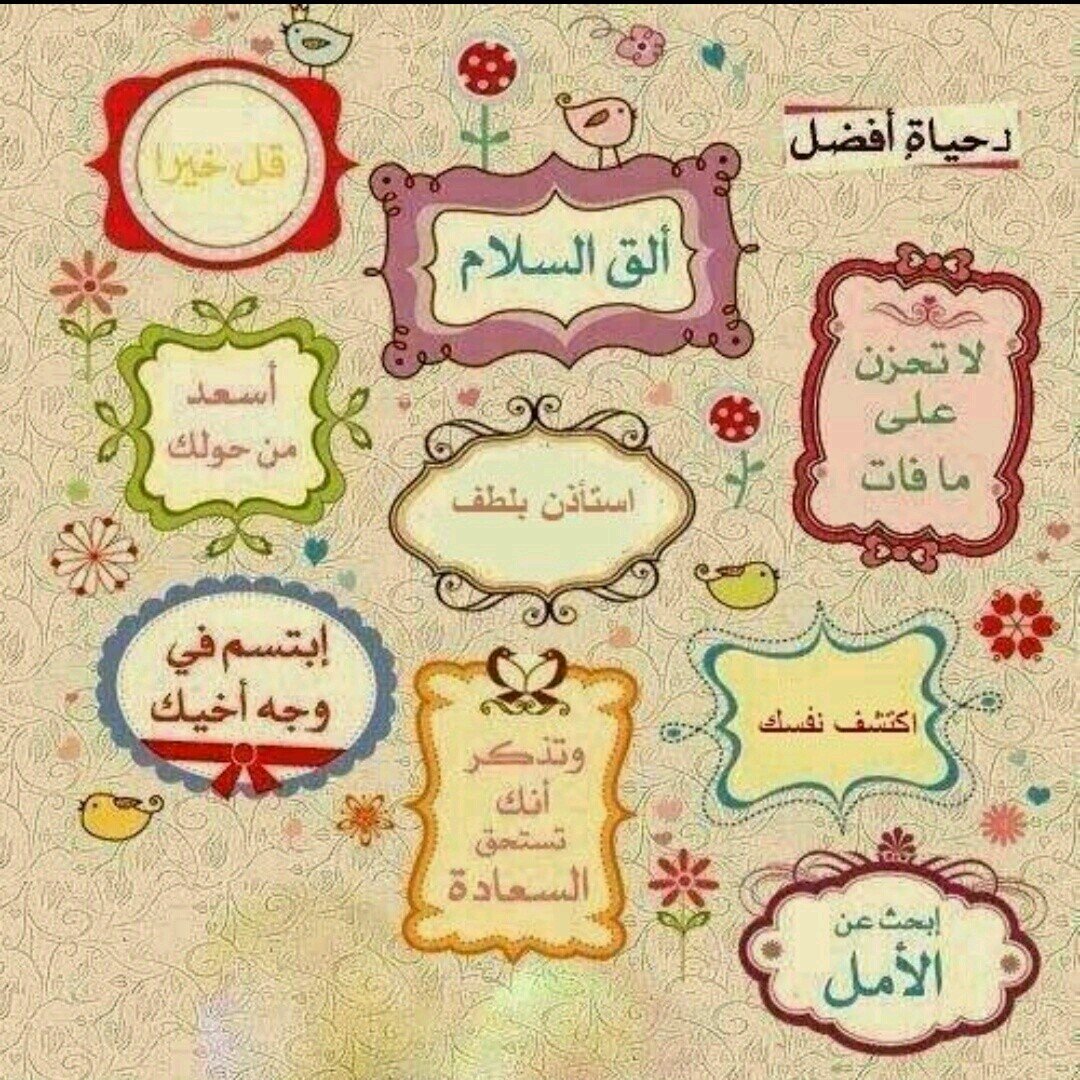 لـحياة أفضل
ألق السلام
قل خيرا
لا تحزن
على
ما فات
أسعد
من حولك
استأذن بلطف
إبتسم في
وجه أخيك
اكتشف نفسك
وتذكر
أنك
تستحق
السعادة
إبحث عن
الأمل